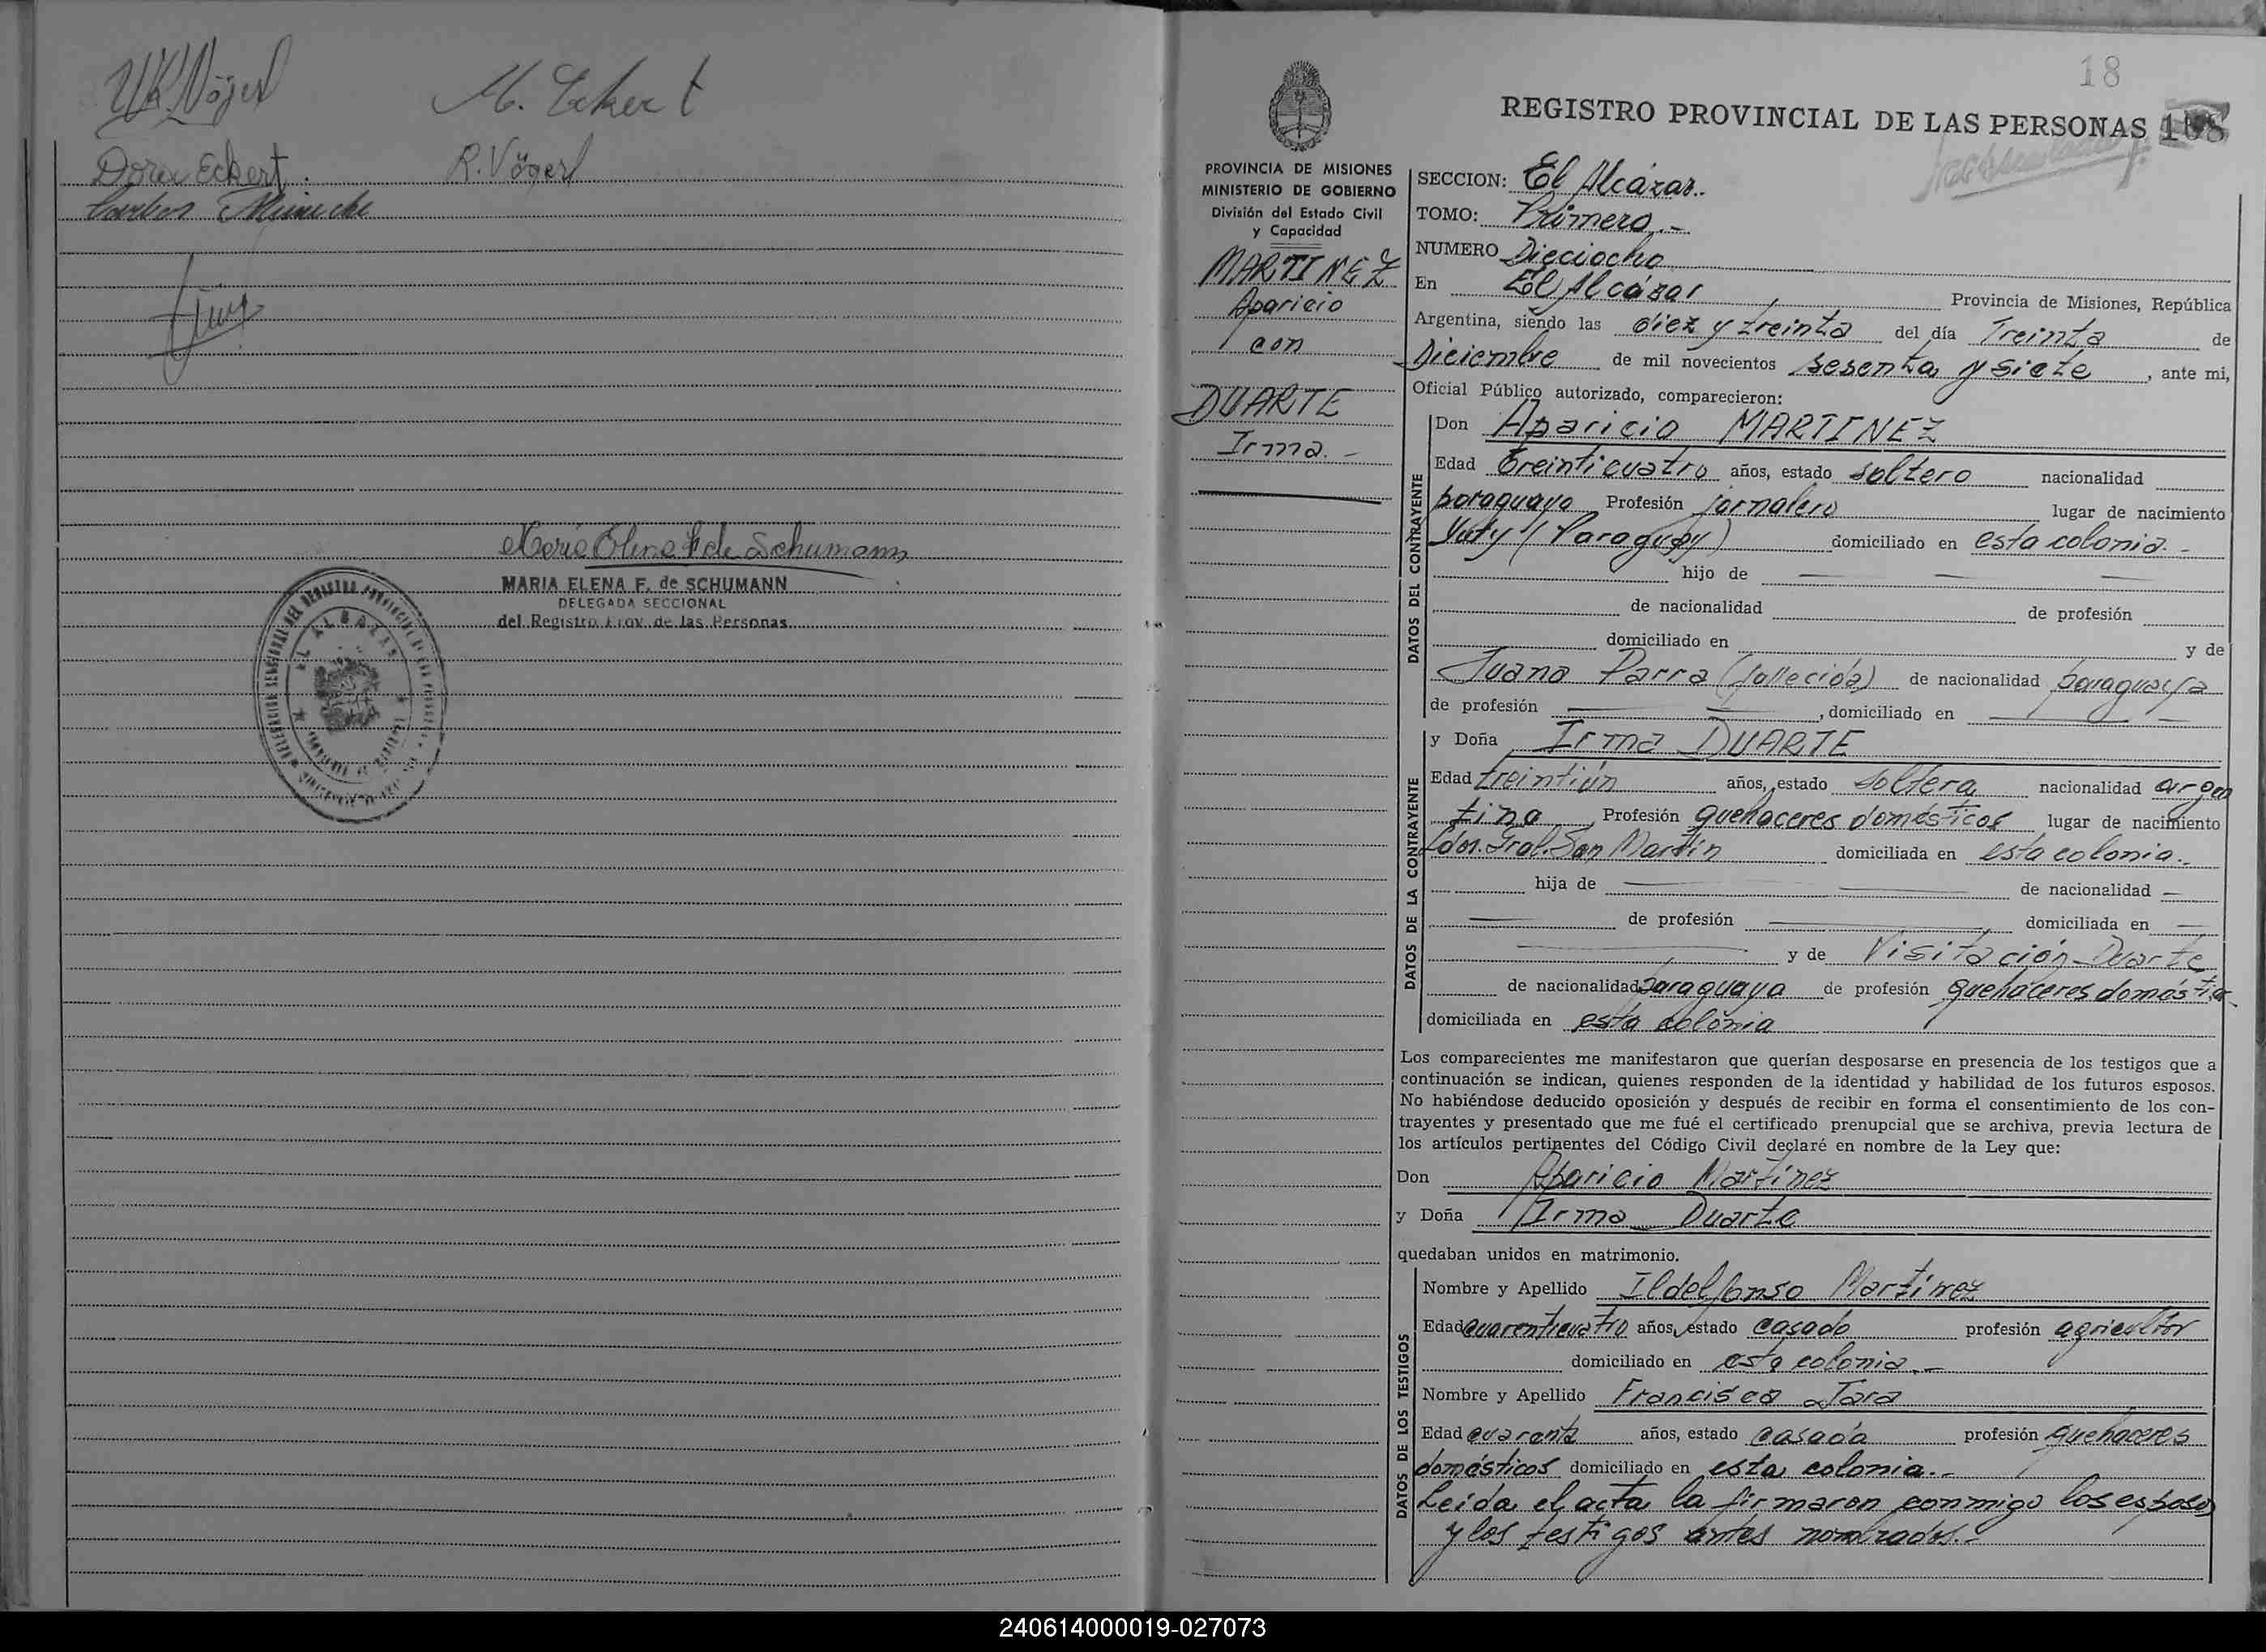 M. Eckert
R. Vögerl
Maria Elena F. de Schumann
MARIA ELENA F. de SCHUMANN
DELEGADA SECCIONAL
del Registro Prov. de las Personas
EL ALCAZAR
18
REGISTRO PROVINCIAL DE LAS PERSONAS 108
PROVINCIA DE MISIONES
MINISTERIO DE GOBIERNO
División del Estado Civil
y Capacidad
MARTINEZ
Aparicio
con
DUARTE
Irma. -
SECCION: El Alcázar.
TOMO: Primero.-
NUMERO Dieciocho
En El Alcázar, Provincia de Misiones, República
Argentina, siendo las diez y treinta del día Treinta de
Diciembre de mil novecientos sesenta y siete, ante mi,
Oficial Público autorizado, comparecieron:
DATOS DEL CONTRAYENTE
Don Aparicio MARTINEZ
Edad treinticuatro años, estado soltero nacionalidad
paraguaya Profesión jornalero lugar de nacimiento
Yuty (Paraguay) domiciliado en esta colonia. -
hijo de — — —
de nacionalidad de profesión
domiciliado en y de
Juana Parra (fallecida) de nacionalidad paraguaya
de profesión — —, domiciliado en — —
DATOS DE LA CONTRAYENTE
y Doña Irma DUARTE
Edad treintiún años, estado soltera nacionalidad argen
tina Profesión quehaceres domésticos lugar de nacimiento
Ldor. Gral. San Martín domiciliada en esta colonia.-
hija de — — de nacionalidad —
— de profesión — domiciliada en —
— y de Visitación Duarte
de nacionalidad paraguaya de profesión quehaceres doméstic.
domiciliada en esta colonia
Los comparecientes me manifestaron que querían desposarse en presencia de los testigos que a
continuación se indican, quienes responden de la identidad y habilidad de los futuros esposos.
No habiéndose deducido oposición y después de recibir en forma el consentimiento de los con-
trayentes y presentado que me fué el certificado prenupcial que se archiva, previa lectura de
los artículos pertinentes del Código Civil declaré en nombre de la Ley que:
Don Aparicio Martínez
y Doña Irma Duarte
quedaban unidos en matrimonio.
DATOS DE LOS TESTIGOS
Nombre y Apellido Ildelfonso Martínez
Edad cuarenticuatro años, estado casado profesión agricultor
domiciliado en esta colonia.-
Nombre y Apellido Francisca Jara
Edad cuarenta años, estado casada profesión quehaceres
domésticos domiciliado en esta colonia.-
Leida el acta la firmaron conmigo los esposos
y los testigos antes nombrados.-
240614000019-027073